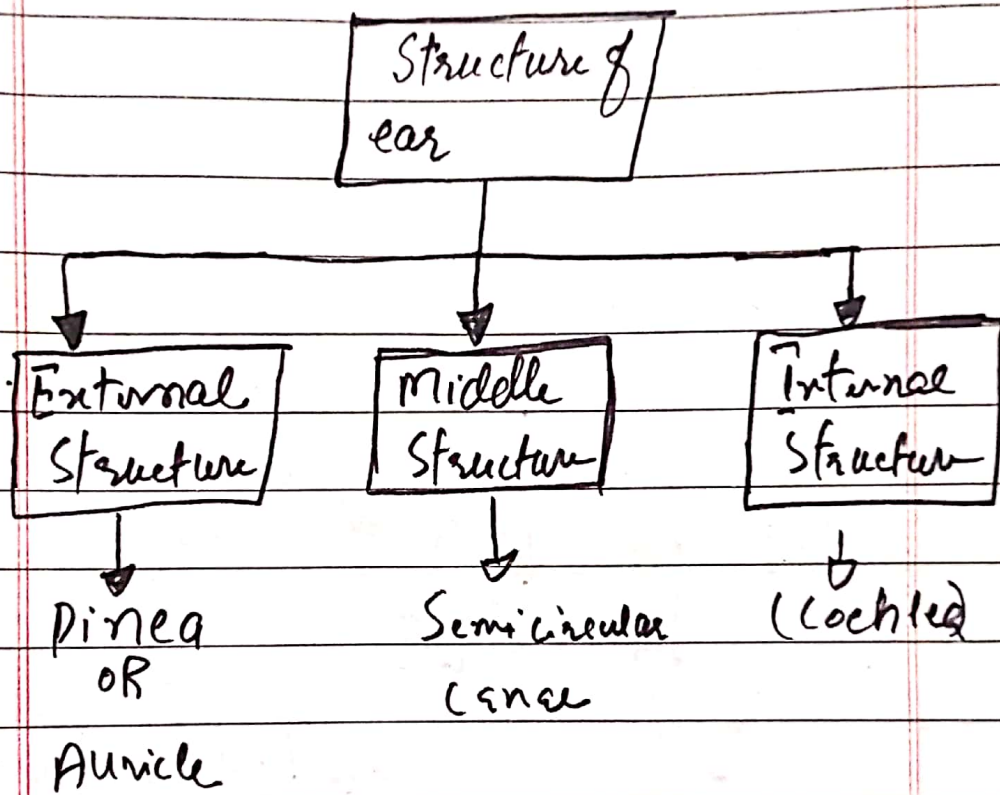 Structure of
ear
External
Structure
Middle
Structure
Internal
Structure
Pinea
OR
Auricle
Semicircular
Canal
(Cochlea)